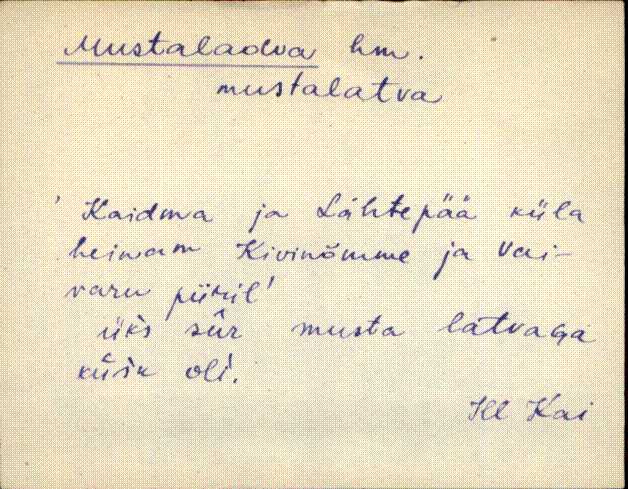 Mustaladva hm.
mustalatva
' Kaidma ja Lähtepää küla
heinam Kivinõmme ja Vai-
varu piiril'
üks sûr musta latvaga
kûsk oli.
Kll Kai